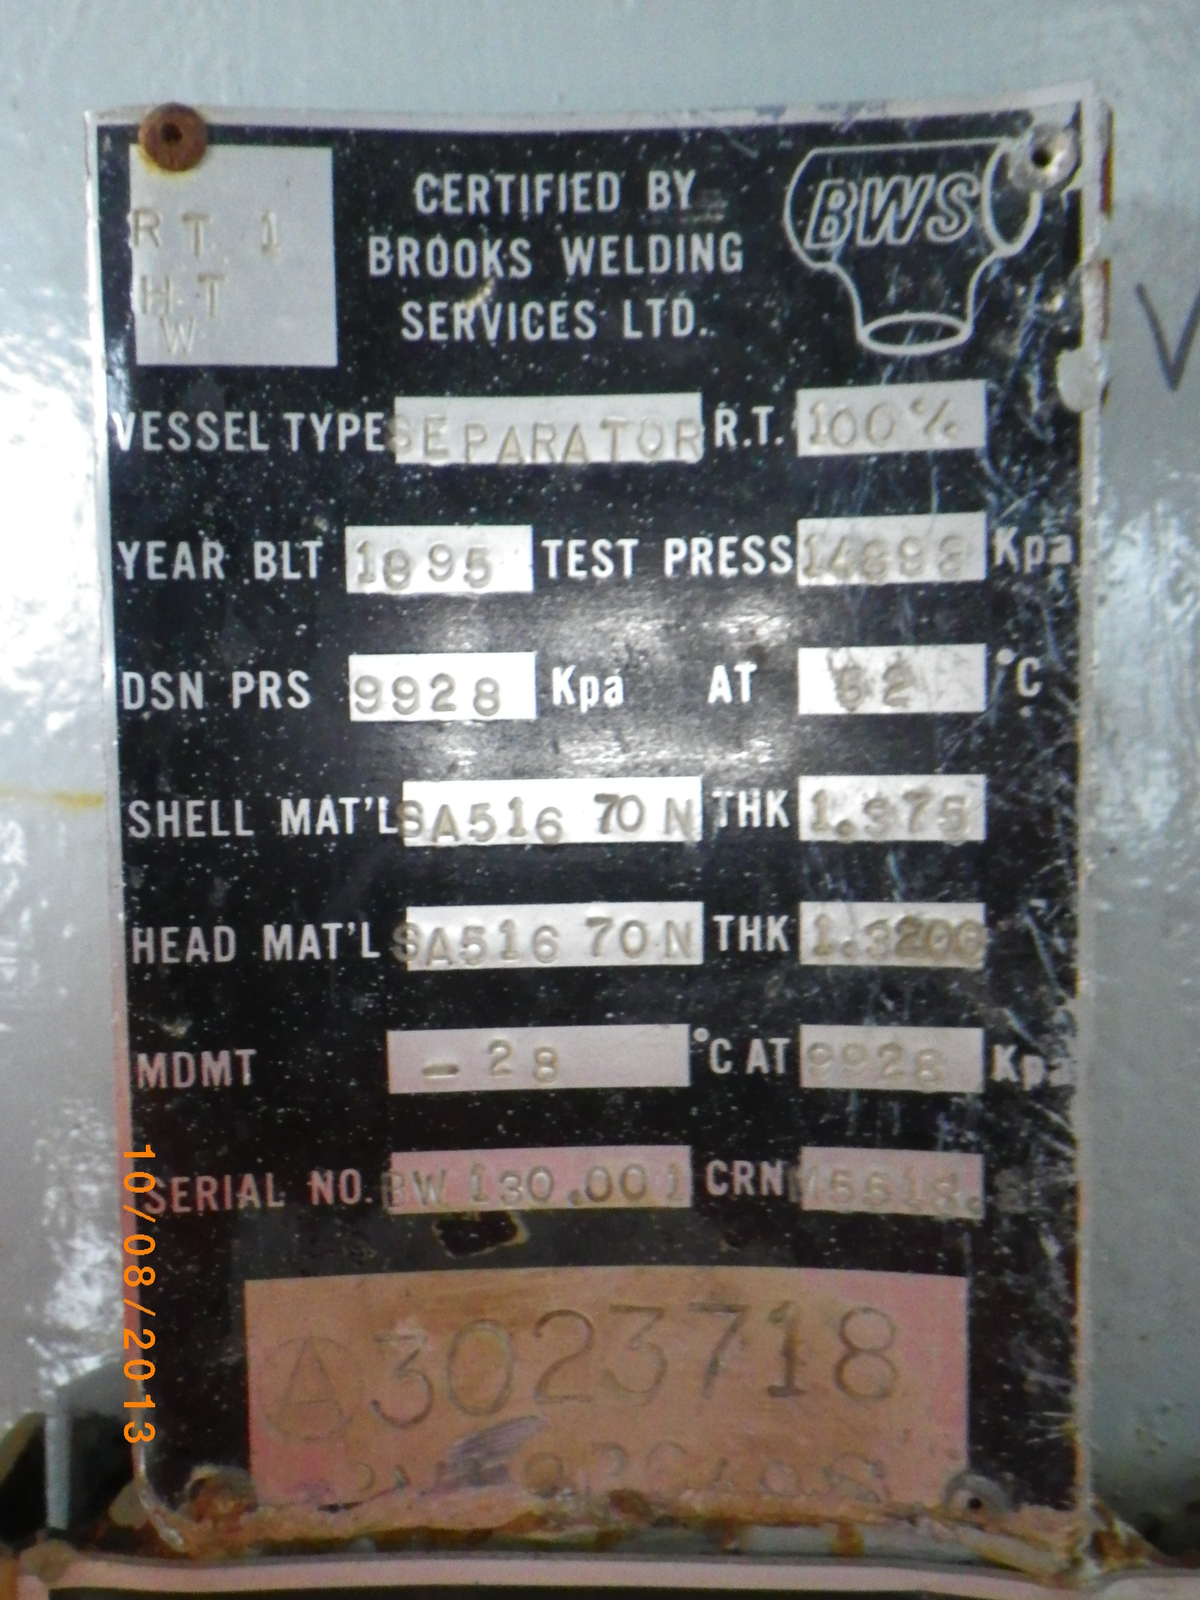 RT 1
HT
W
CERTIFIED BY
BROOKS WELDING
SERVICES LTD.
BWS
VESSEL TYPE SEPARATOR R.T. 100%
YEAR BLT 1995 TEST PRESS Kpa
DSN PRS 9928 Kpa AT °C
SHELL MAT'L SA516 70 N THK 1.375
HEAD MAT'L SA516 70 N THK
MDMT -28 °C AT 9928 Kpa
SERIAL NO. BW 130.001 CRN
A3023718
10/08/2013
V